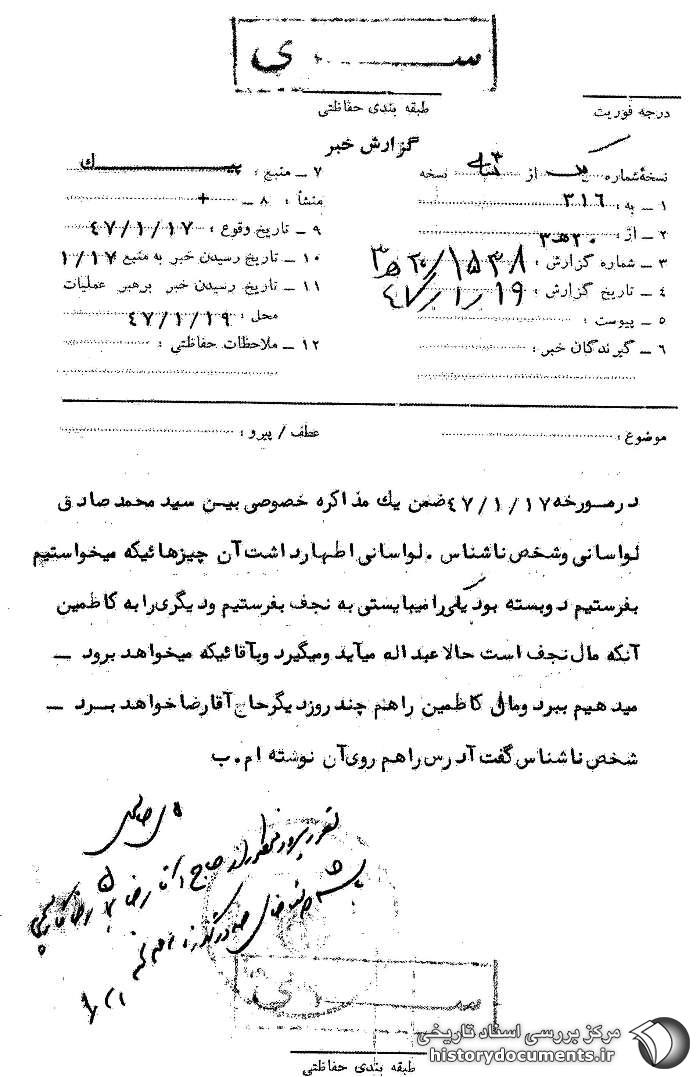 ســـری
طبقه بندی حفاظتی
درجه فوریت
گزارش خبر
نسخهٔ شماره از نسخه
۱ ــ به : ۳۱۶
۲ ــ از : ۲۰ هـ ۳
۳ ــ شماره گزارش : ۱۵۳۸ / ۲۰ هـ ۳
۴ ــ تاریخ گزارش : ۴۷/۱/۱۹
۵ ــ پیوست :
۶ ــ گیرندگان خبر :
۷ ــ منبع :
۸ ــ منشأ : +
۹ ــ تاریخ وقوع : ۴۷/۱/۱۷
۱۰ ــ تاریخ رسیدن خبر به منبع ۱/۱۷
۱۱ ــ تاریخ رسیدن خبر برهبر عملیات
محل : ۴۷/۱/۱۹
۱۲ ــ ملاحظات حفاظتی :
موضوع :
عطف / پیرو :
درمورخه ۴۷/۱/۱۷ ضمن یك مذاکره خصوصی بیـن سید محمد صادق
لواسانی وشخص ناشناس . لواسانی اظهارداشت آن چیزهائیکه میخواستیم
بفرستیم دوبسته بود یکی را میبایستی به نجف بفرستیم ودیگری را به کاظمین
آنکه مال نجف است حالا عبد اله میآید ومیگیرد وبآقائیکه میخواهد برود ــ
میدهیم ببرد ومال کاظمین راهم چند روزدیگرحاج آقارضا خواهد بــرد ــ
شخص ناشناس گفت آدرس راهم روی آن نوشته ام . ب
ســـری
طبقه بندی حفاظتی
مرکز بررسی اسناد تاریخی
historydocuments.ir